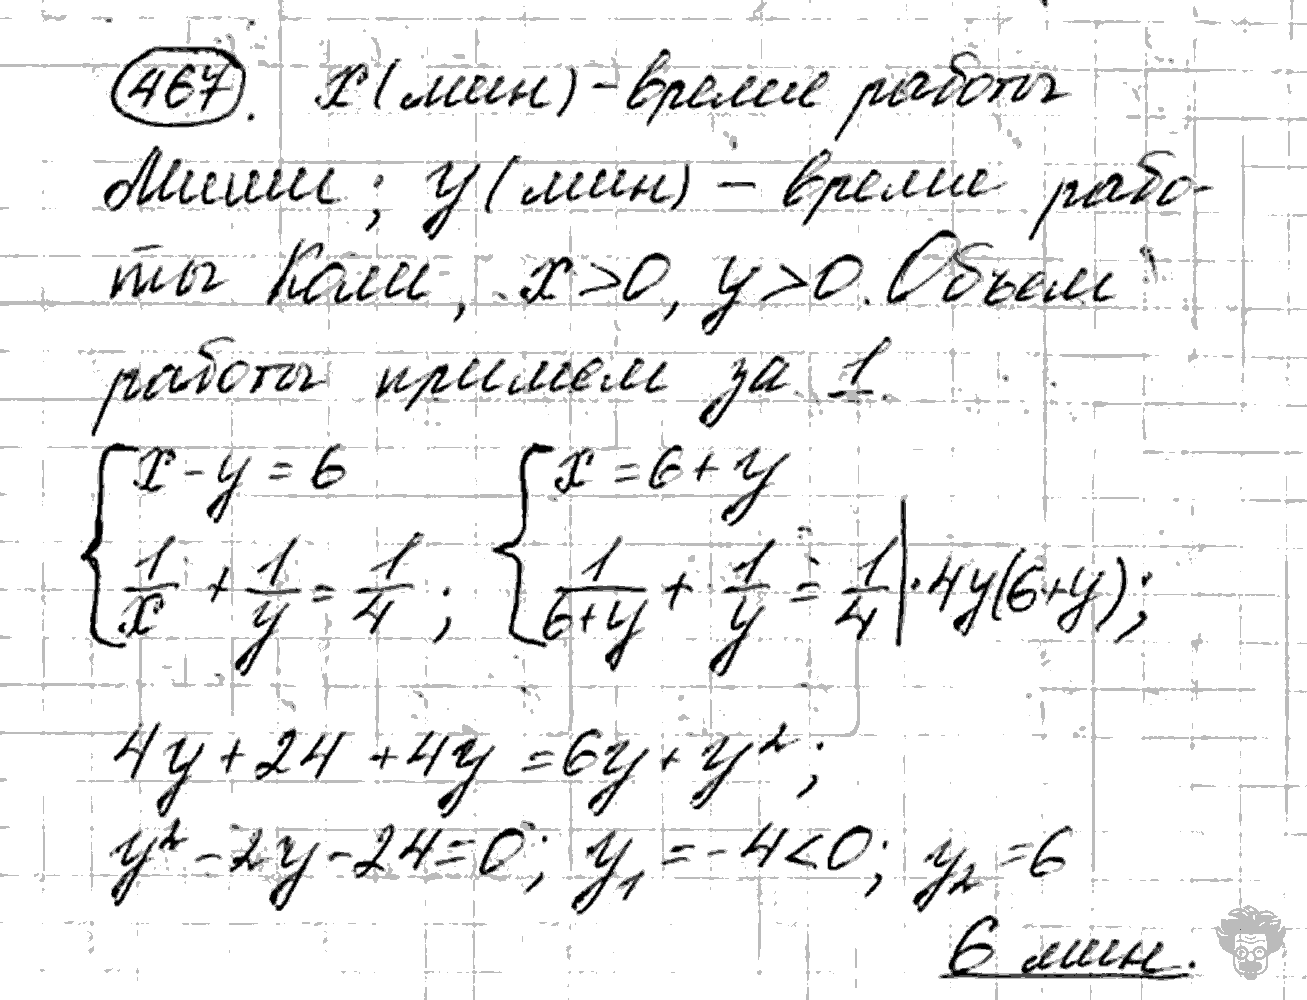 467. x (мин) - время работы
Миши; y (мин) - время рабо-
ты Коли, x>0, y>0. Объем
работы примем за 1.
{x-y=6 {x=6+y
{1/x + 1/y = 1/4; {1/(6+y) + 1/y = 1/4 | ·4y(6+y);
4y+24+4y=6y+y²;
y²-2y-24=0; y₁=-4<0; y₂=6
6 мин.